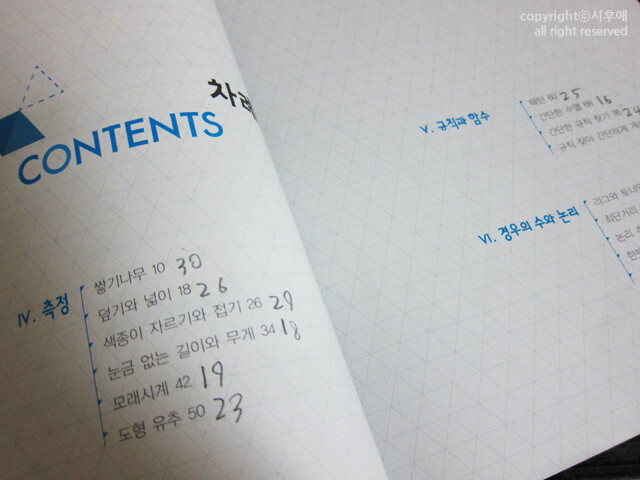 copyrightⓒ시후애
all right reserved
차례
CONTENTS
Ⅳ. 측정
쌓기나무 10 30
덮기와 넓이 18 26
색종이 자르기와 접기 26 29
눈금 없는 길이와 무게 34 18
모래시계 42 19
도형 유추 50 23
Ⅴ. 규칙과 함수
패턴 60 25
간단한 수열 68 16
간단한 규칙 찾기 76 24
규칙 찾아 간단하게
Ⅵ. 경우의 수와 논리
리그와
최단거리
논리